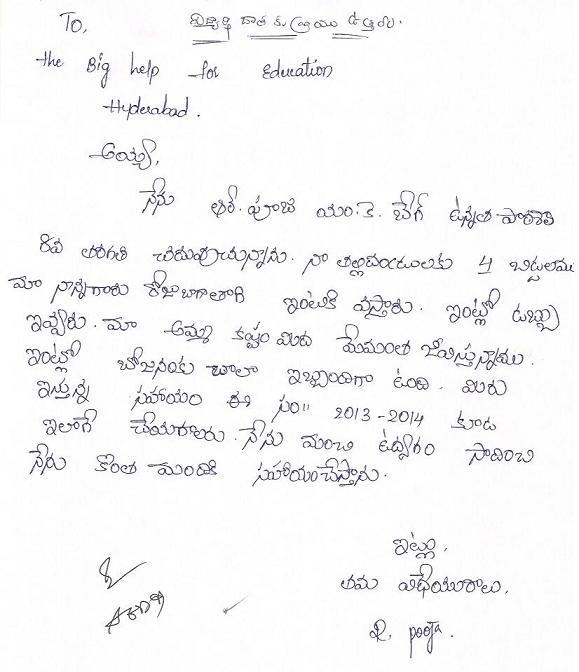 To,
విద్యార్థి దాతకు వ్రాయు ఉత్తరం.
the Big help for Education
Hyderabad.
అయ్యా,
నేను ఆర్. పూజ యం.కె. బేగ్ ఉన్నత పాఠశాల
8వ తరగతి చదువుచున్నాను. నా తల్లిదండ్రులకు 4 బిడ్డలము
మా నాన్నగారు రోజు బాగా తాగి ఇంటికి వస్తారు. ఇంట్లో డబ్బు
ఇవ్వరు. మా అమ్మ కష్టం మీద మేమంత జీవిస్తున్నాము.
ఇంట్లో బోజనంకు చాలా ఇబ్బందిగా ఉంది. మీరు
ఇస్తున్న సహాయం ఈ సం॥ 2013-2014 కూడ
ఇలాగే చేయగలరు. నేను మంచి ఉద్యోగం సాదించి
నేను కొంత మందికి సహాయంచేస్తాను.
ఇట్లు,
తమ విధేయురాలు,
R. pooja.